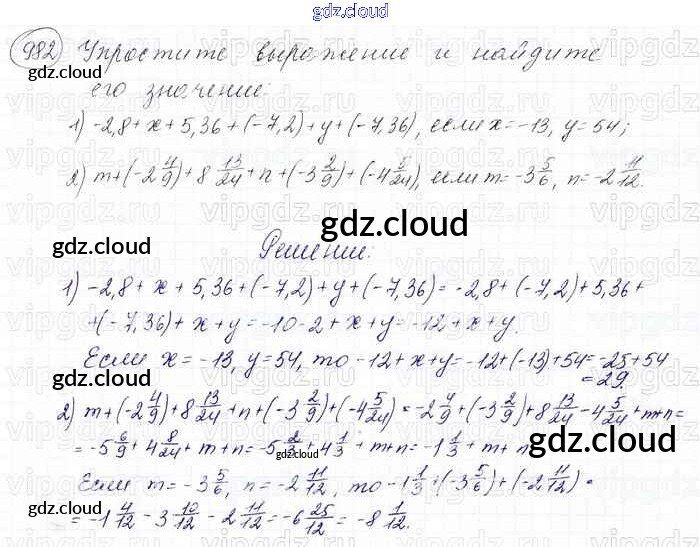 gdz.cloud
982 Упростите выражение и найдите
его значение:
1) -2,8 + x + 5,36 + (-7,2) + y + (-7,36), если x = -13, y = 54;
2) m + (-2 4/9) + 8 13/24 + n + (-3 2/9) + (-4 5/24), если m = -3 5/6, n = -2 11/12.
Решение:
1) -2,8 + x + 5,36 + (-7,2) + y + (-7,36) = -2,8 + (-7,2) + 5,36 +
+ (-7,36) + x + y = -10 - 2 + x + y = -12 + x + y.
Если x = -13, y = 54, то -12 + x + y = -12 + (-13) + 54 = -25 + 54
= 29.
2) m + (-2 4/9) + 8 13/24 + n + (-3 2/9) + (-4 5/24) = -2 4/9 + (-3 2/9) + 8 13/24 - 4 5/24 + m + n =
= -5 6/9 + 4 8/24 + m + n = -5 2/3 + 4 1/3 + m + n = -1 1/3 + m + n
Если m = -3 5/6, n = -2 11/12, то -1 1/3 + (-3 5/6) + (-2 11/12) =
= -1 4/12 - 3 10/12 - 2 11/12 = -6 25/12 = -8 1/12.
gdz.cloud
gdz.cloud
gdz.cloud
gdz.cloud
gdz.cloud
gdz.cloud
gdz.cloud
gdz.cloud